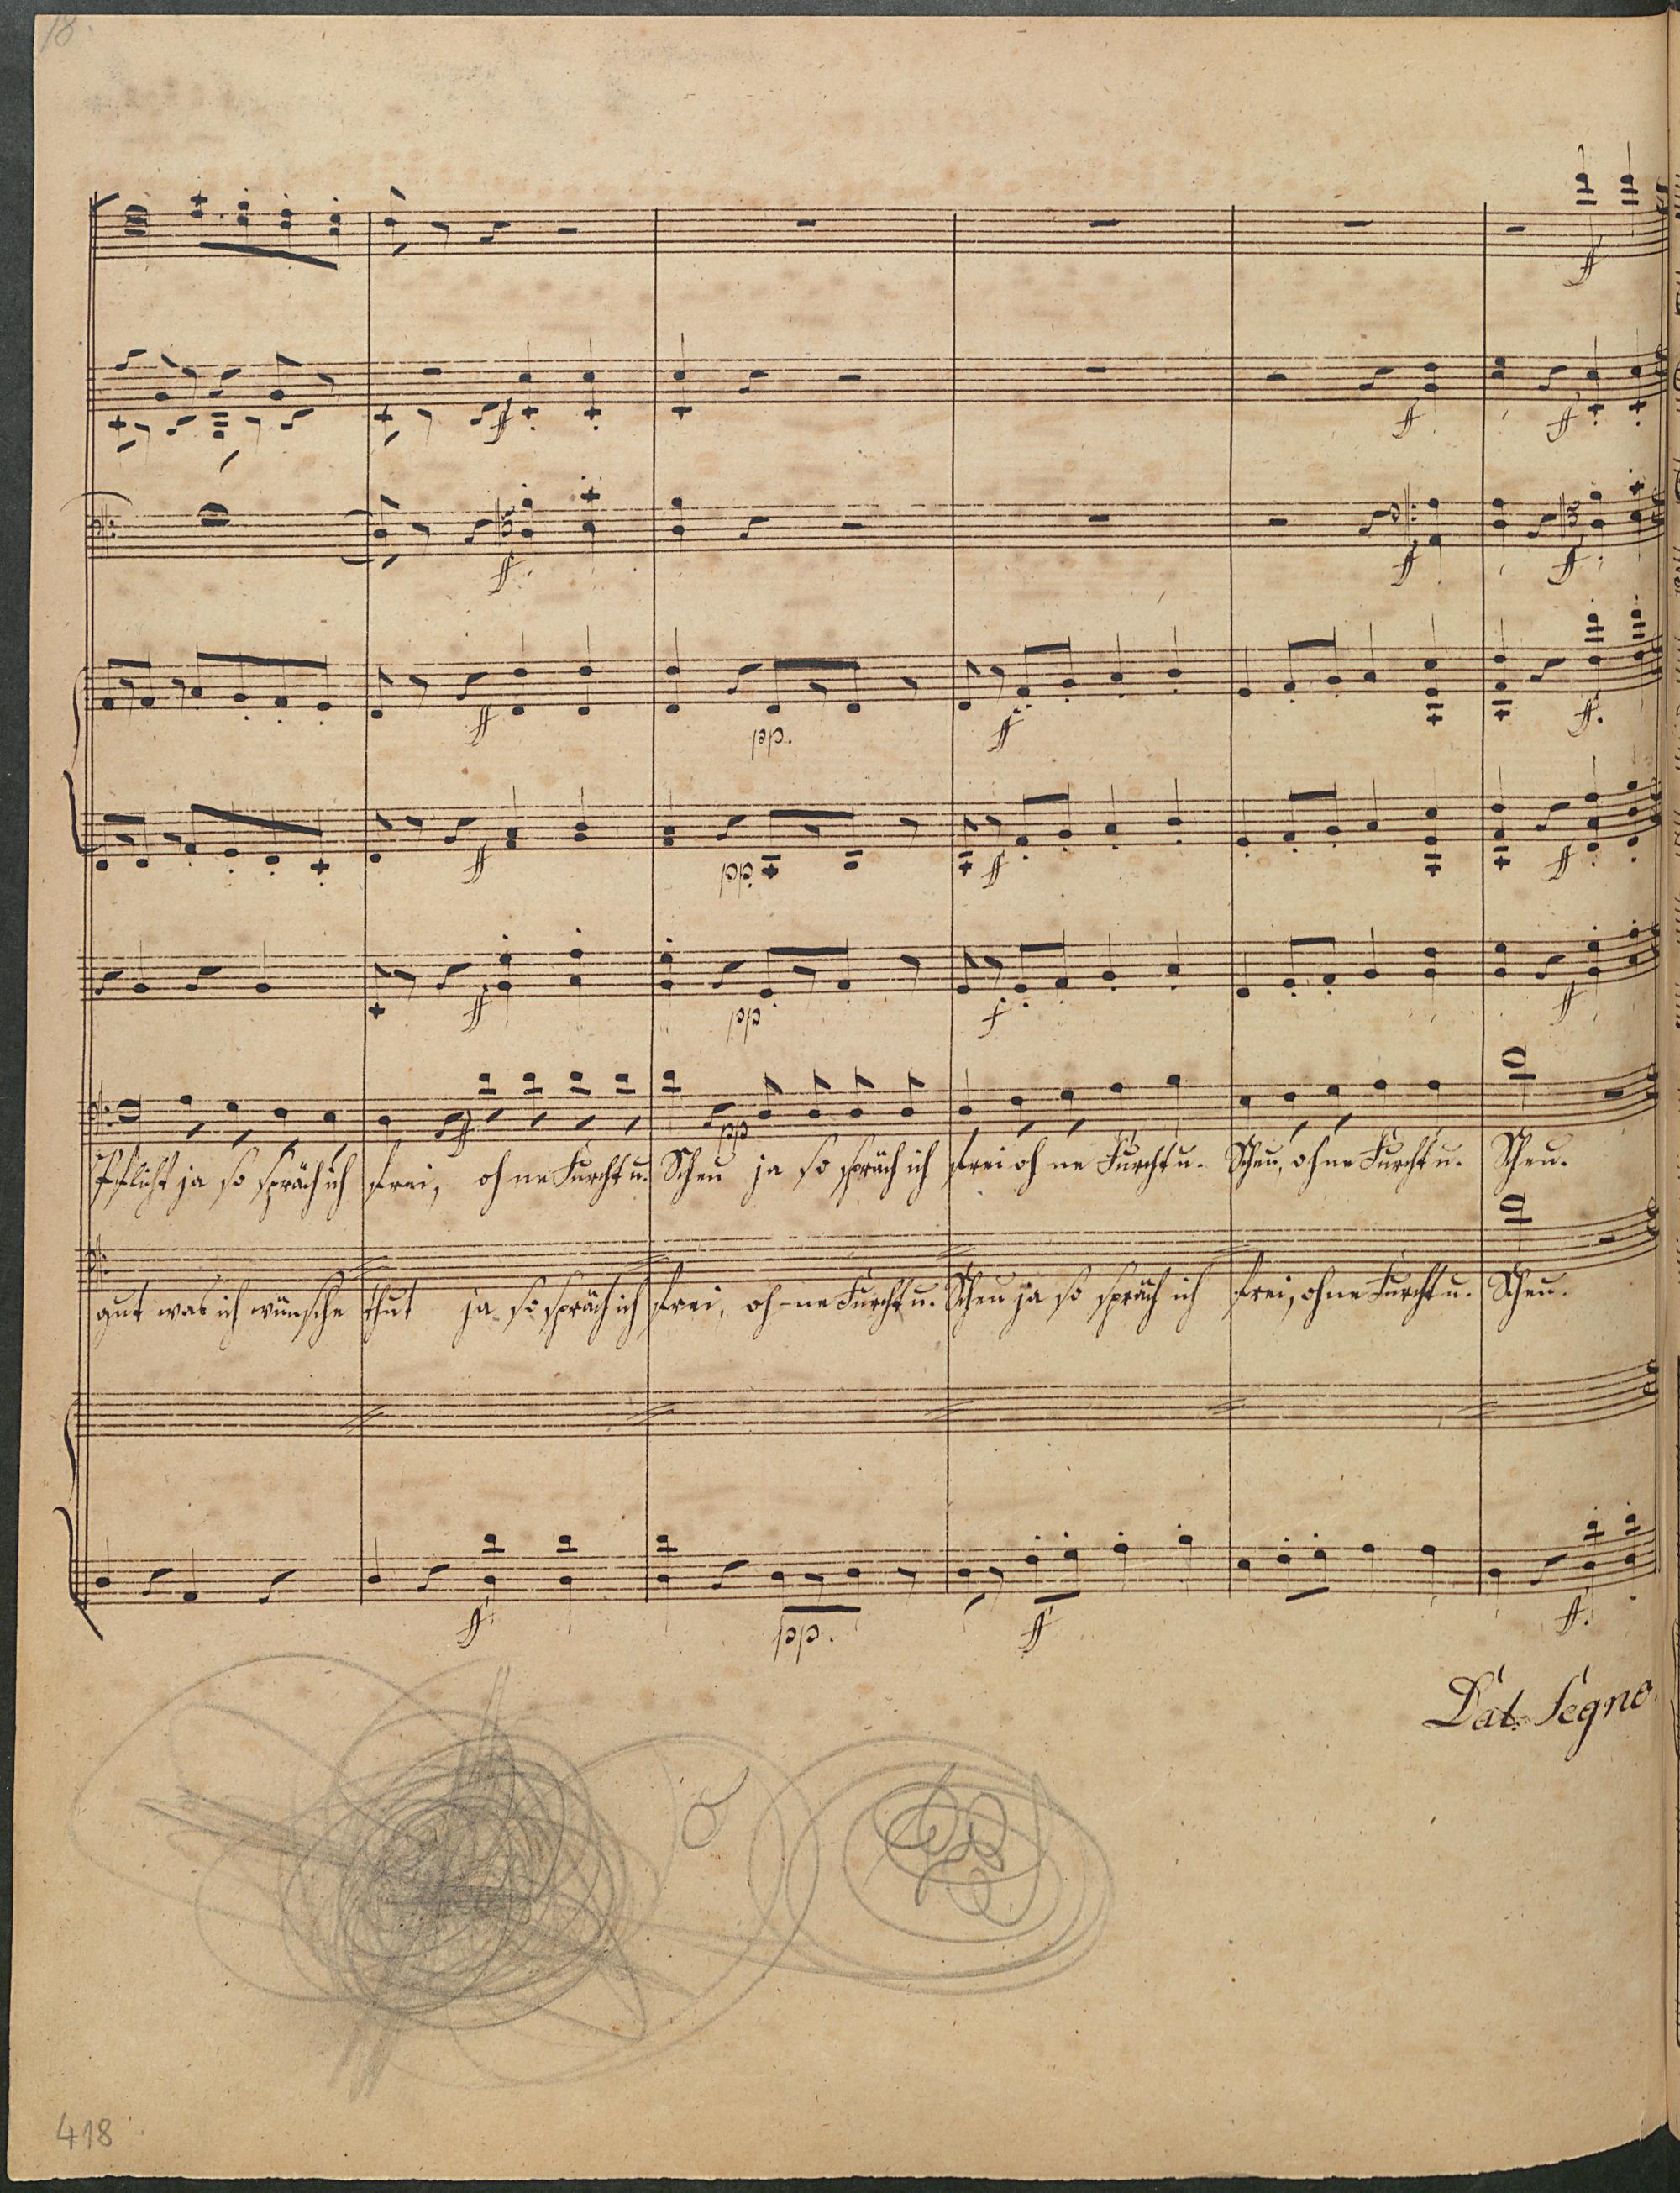 18.
ff
ff
ff
ff
ff
ff
ff
ff
pp.
f
ff.
ff
pp
ff
ff
ff
pp
f
ff
ff
pp
Pflicht ja so spräch ich frei, oh ne Furcht u. Scheu ja so spräch ich frei oh ne Furcht u. Scheu, ohne Furcht u. Scheu.
gut was ich wünsche thut ja so spräch ich frei, oh-ne Furcht u. Scheu ja so spräch ich frei, ohne Furcht u. Scheu.
ff
pp.
ff
ff.
Dal Segno
418